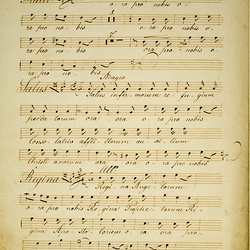 ora pro nobis o:
ra pro no: bis ora pro nobis o:
ra pro no: bis. Adagio
Salus Salus infir morum re fu gium
pecca torum ora ora o ra pro nobis
Conso latrix afflic torum au xi lium
Christi anorum ora ora o ra pro nobis
Regina Regi na Ange lorum
o ra pro nobis Re gina
gina Apo sto lorum o ra ora pro nobis